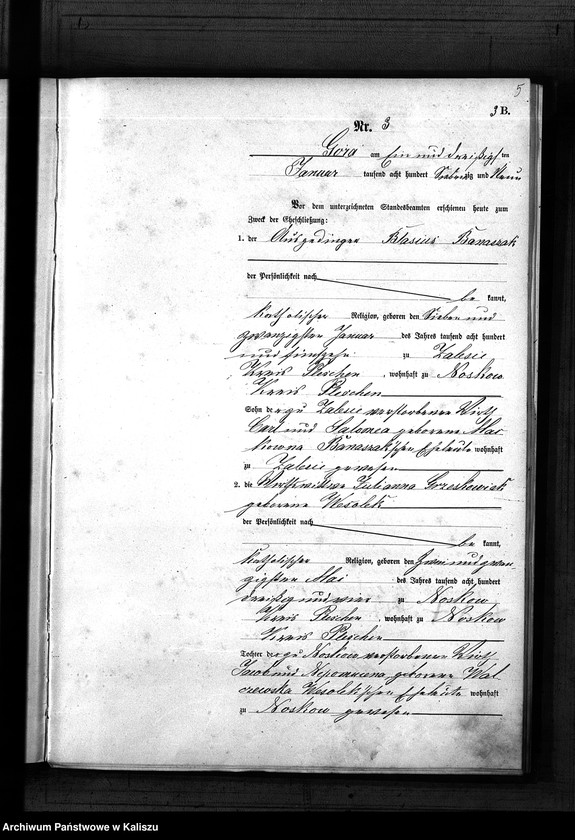 5
3 B.
Nr. 3
Góra am Ein und dreißigsten
Januar tausend acht hundert siebenzig und Neun
Vor dem unterzeichneten Standesbeamten erschienen heute zum
Zweck der Eheschließung:
1. der Ausgedinger Blasius Banaszak
der Persönlichkeit nach
be kannt,
katholischer Religion, geboren den Sieben und
zwanzigsten Januar des Jahres tausend acht hundert
und fünfzehn zu Zalesie
Kreis Pleschen, wohnhaft zu Noskow
Kreis Pleschen
Sohn der zu Zalesie verstorbenen Wirth
Carl und Salomea geborene
Banaszak'schen Eheleute wohnhaft
zu Zalesie gewesen
2. die Wirthwittwe Julianna Grzeskowiak
geborene Wesolek
der Persönlichkeit nach
be kannt,
katholischer Religion, geboren den Zwei und zwan-
zigsten Mai des Jahres tausend acht hundert
dreißig und vier zu Noskow
Kreis Pleschen, wohnhaft zu Noskow
Kreis Pleschen
Tochter der zu Noskow verstorbenen Wirth
Jacob und Nepomucena geborene Wal-
czewska Wesolek'schen Eheleute wohnhaft
zu Noskow gewesen
Archiwum Państwowe w Kaliszu